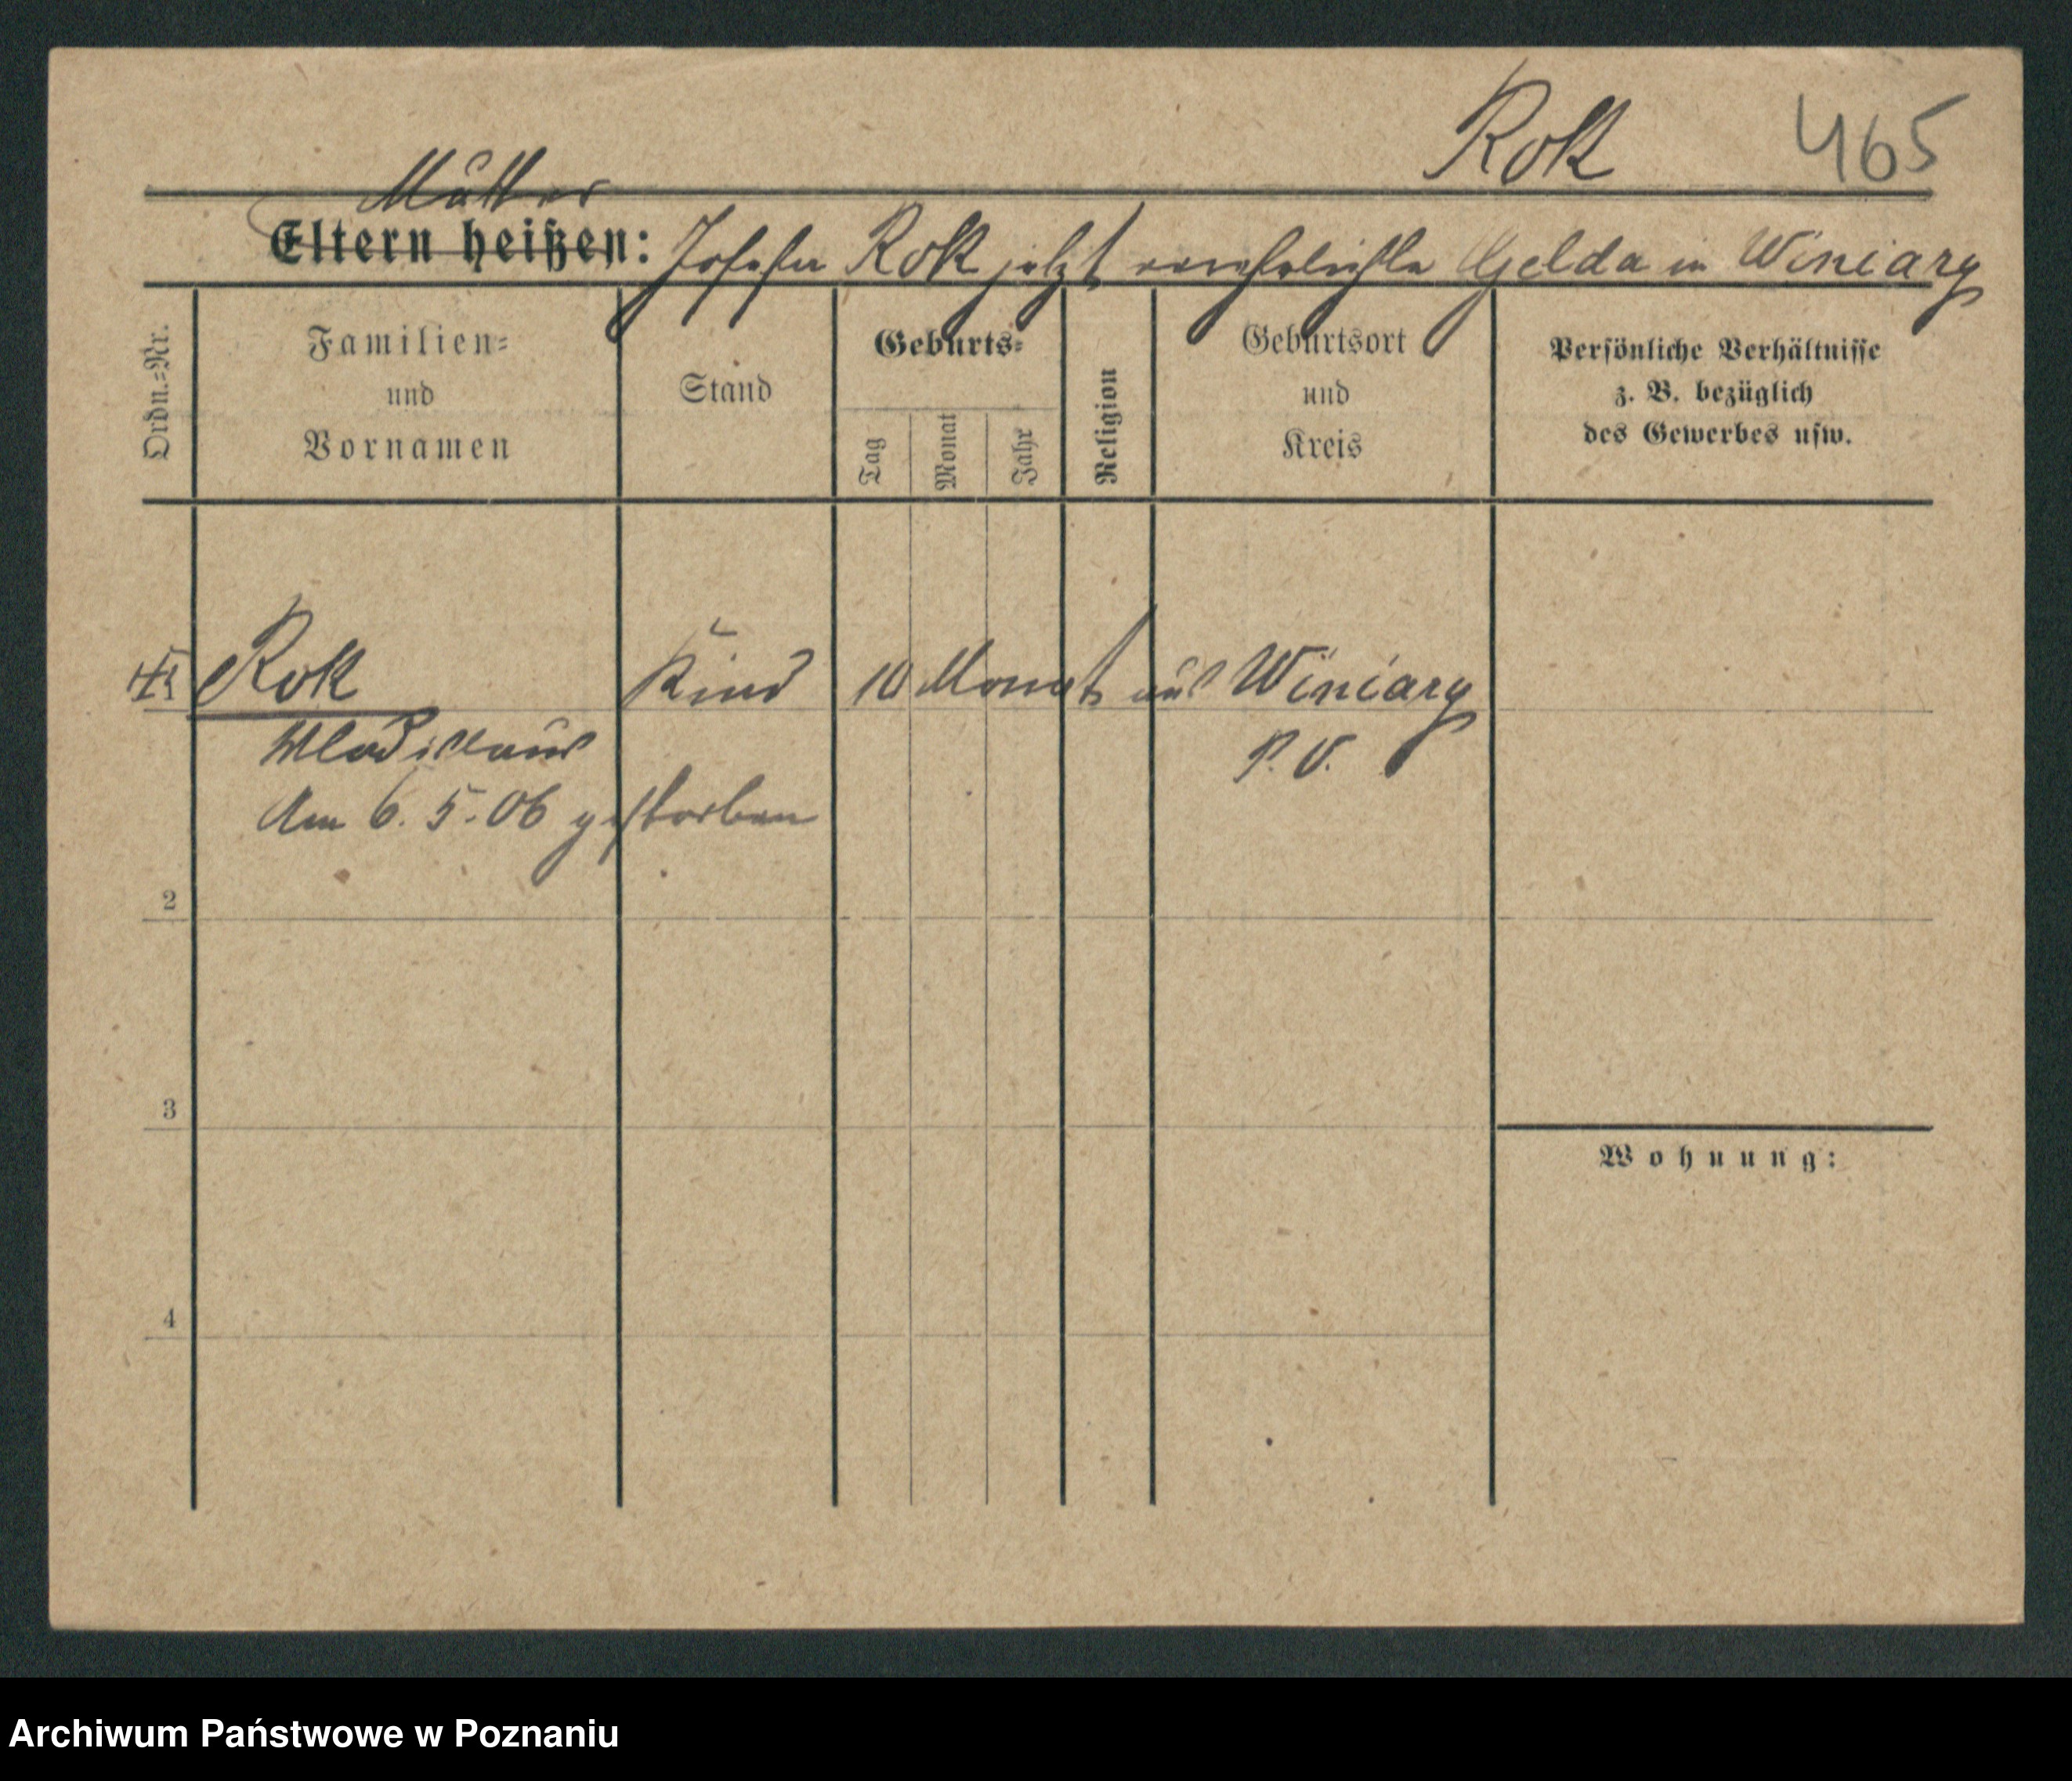 Rok 465
Mutter
Eltern heißen: Josefa Rok jetzt verehelichte Gelda in Winiary
Ordn.=Nr.
Familien=
und
Vornamen
Stand
Geburts=
Tag
Monat
Jahr
Religion
Geburtsort
und
Kreis
Persönliche Verhältnisse
z. B. bezüglich
des Gewerbes usw.
Rok Kind 10 Monat aus Winiary
Wladislaus P. O.
Am 6. 5. 06 gestorben
2
3
Wohnung:
4
Archiwum Państwowe w Poznaniu